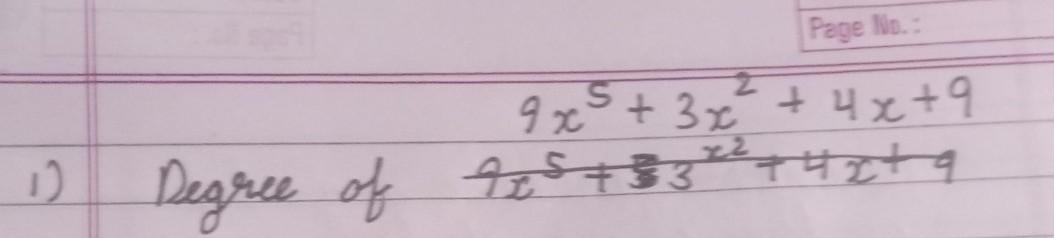 Page No.:
9x⁵ + 3x² + 4x + 9
1) Degree of 9x⁵ + 3^x2 + 4x + 9